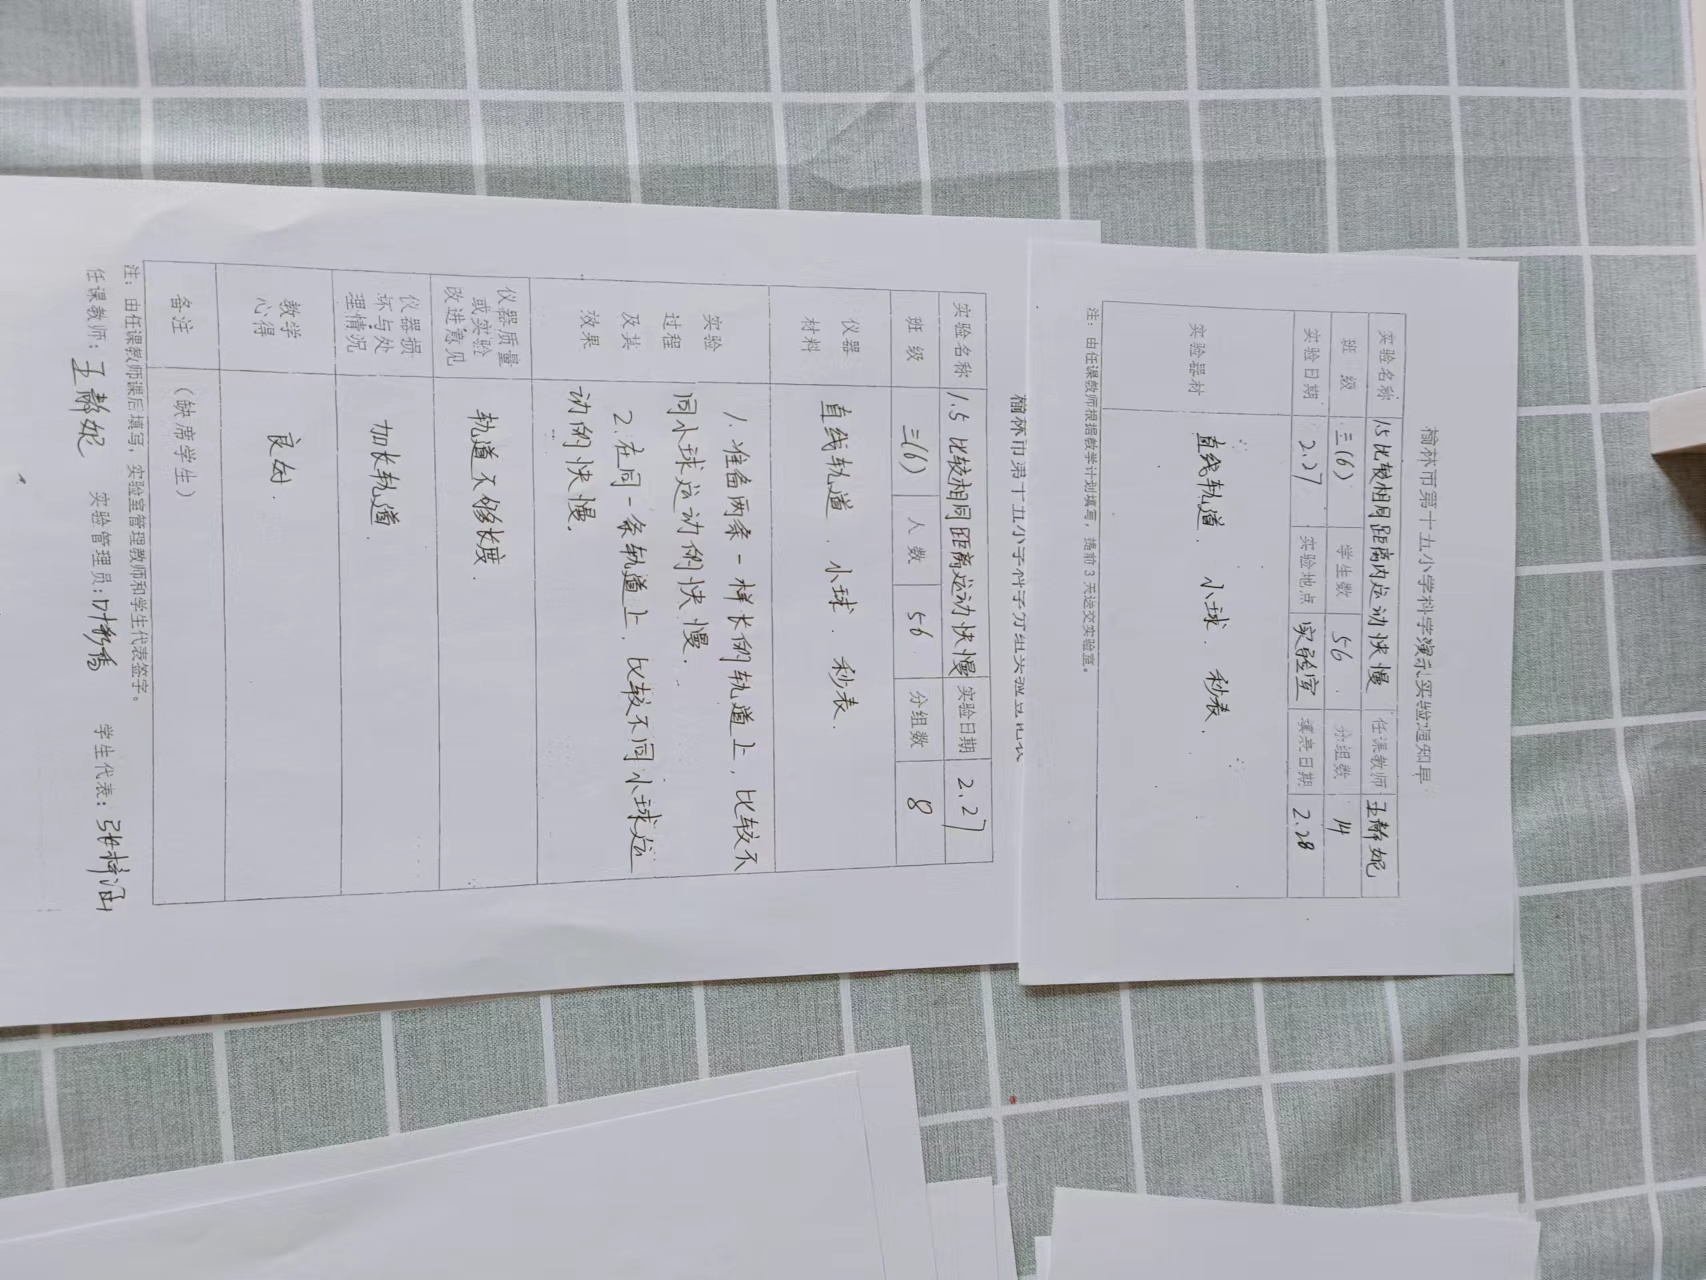 榆林市第十五小学科学演示实验通知单
实验名称 1.5比较相同距离内运动快慢 任课教师 王静妮
班 级 三(6) 学生数 56. 分组数 14
实验日期 2.27 实验地点 实验室 填表日期 2.28
实验器材 直线轨道. 小球. 秒表.
注：由任课教师根据教学计划填写，提前3天送交实验室。
榆林市第十五小学科学分组实验登记表
实验名称 1.5 比较相同距离运动快慢 实验日期 2.27
班 级 三(6) 人 数 56 分组数 8
仪器
材料
直线轨道. 小球. 秒表.
实验
过程
及其
效果
1. 准备两条一样长的轨道上，比较不
同小球运动的快慢.
2. 在同一条轨道上，比较不同小球运
动的快慢.
仪器质量
或实验
改进意见
轨道不够长度.
仪器损
坏与处
理情况
加长轨道.
教学
心得
良好.
备注 （缺席学生）
注：由任课教师课后填写，实验室管理教师和学生代表签字。
任课教师：王静妮 实验管理员： 学生代表：张梓涵